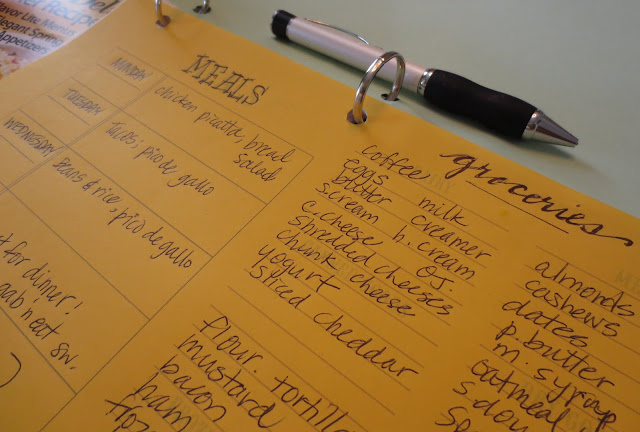 MEALS
MONDAY
chicken picatta, bread
salad
TUESDAY
Tacos, pico de gallo
WEDNESDAY
Beans & rice, pico de gallo
for dinner!
eat sw.
groceries
coffee
eggs milk
butter creamer
scream h. cream
c. cheese OJ
shredded cheeses
chunk cheese
yogurt
sliced cheddar
flour. tortill
mustard
bacon
ham
almonds
cashews
dates
p. butter
m. syrup
oatmeal